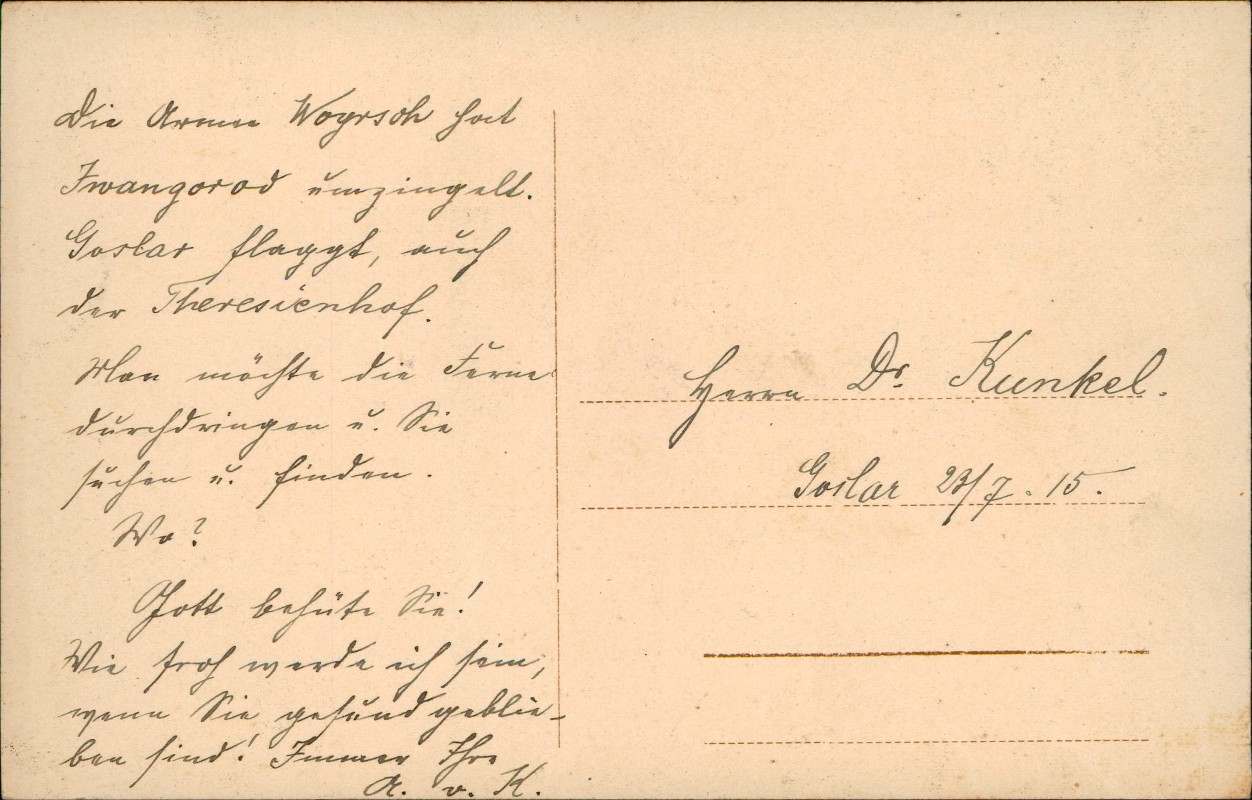 Die Armee Woyrsch hat
Iwangorod umzingelt.
Goslar flaggt, auch
der Theresienhof.
Man möchte die Ferne
durchdringen u. Sie
suchen u. finden.
Wo?
Gott behüte Sie!
Wie froh werde ich sein,
wenn Sie gesund geblie-
ben sind! Immer Ihre
A. v. K.
Herrn Dr. Kunkel.
Goslar 23/7. 15.